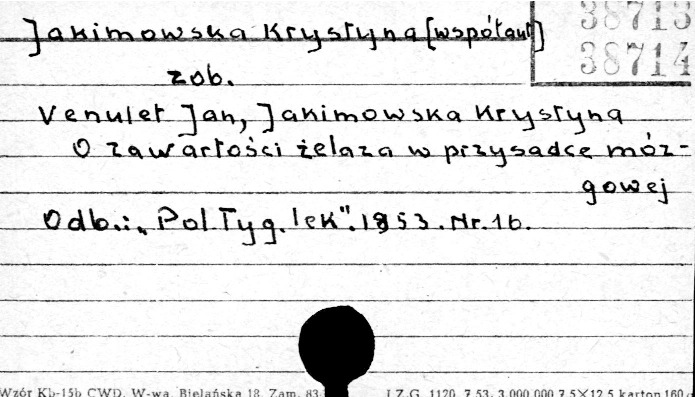 Jakimowska Krystyna [współaut]
38713
38714
zob.
Venulet Jan, Jakimowska Krystyna
O zawartości żelaza w przysadce móz-
gowej
Odb.: „Pol. Tyg. lek". 1953. Nr. 16.
Wzór Kb-15b CWD, W-wa, Bielańska 18, Zam. 83
LZ.G. 1120 7.53. 3.000.000 7,5×12,5 karton 160